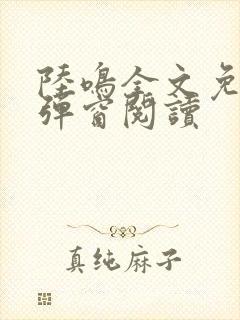 陸鳴全文免
彈窗閱讀
真纯麻子